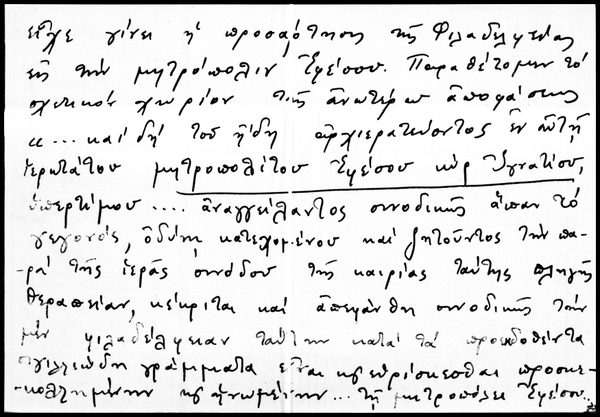 εἶχε γίνει ἡ προσάρτησις τῆς Φιλαδελφείας
εἰς τὴν μητρόπολιν Ἐφέσου. Παραθέτομεν τὸ
σχετικὸν χωρίον τῆς ἀνωτέρω ἀποφάσεως
«... καὶ δὴ τοῦ ἤδη ἀρχιερατεύοντος ἐν αὐτῇ
ἱερωτάτου μητροπολίτου Ἐφέσου κὺρ Ἰγνατίου,
ὑπερτίμου .... ἀναγγείλαντος συνοδικῆς ἅπαν τὸ
γεγονός, ὀδύνῃ κατεχομένου καὶ ζητοῦντος τὴν πα-
-ρὰ τῆς ἱερᾶς συνόδου τῆς καιρίας ταύτης πληγῆς
θεραπείαν, κέκριται καὶ ἀπεφάνθη συνοδικῶς τὴν
μὲν Φιλαδέλφειαν ταύτην κατὰ τὰ προεκδοθέντα
σιγιλλιώδη γράμματα εἶναι κ̣ εὑρίσκεσθαι προσκε-
-κολλημένην κ̣ ἡνωμένην ... τῇ μητροπόλει Ἐφέσου..